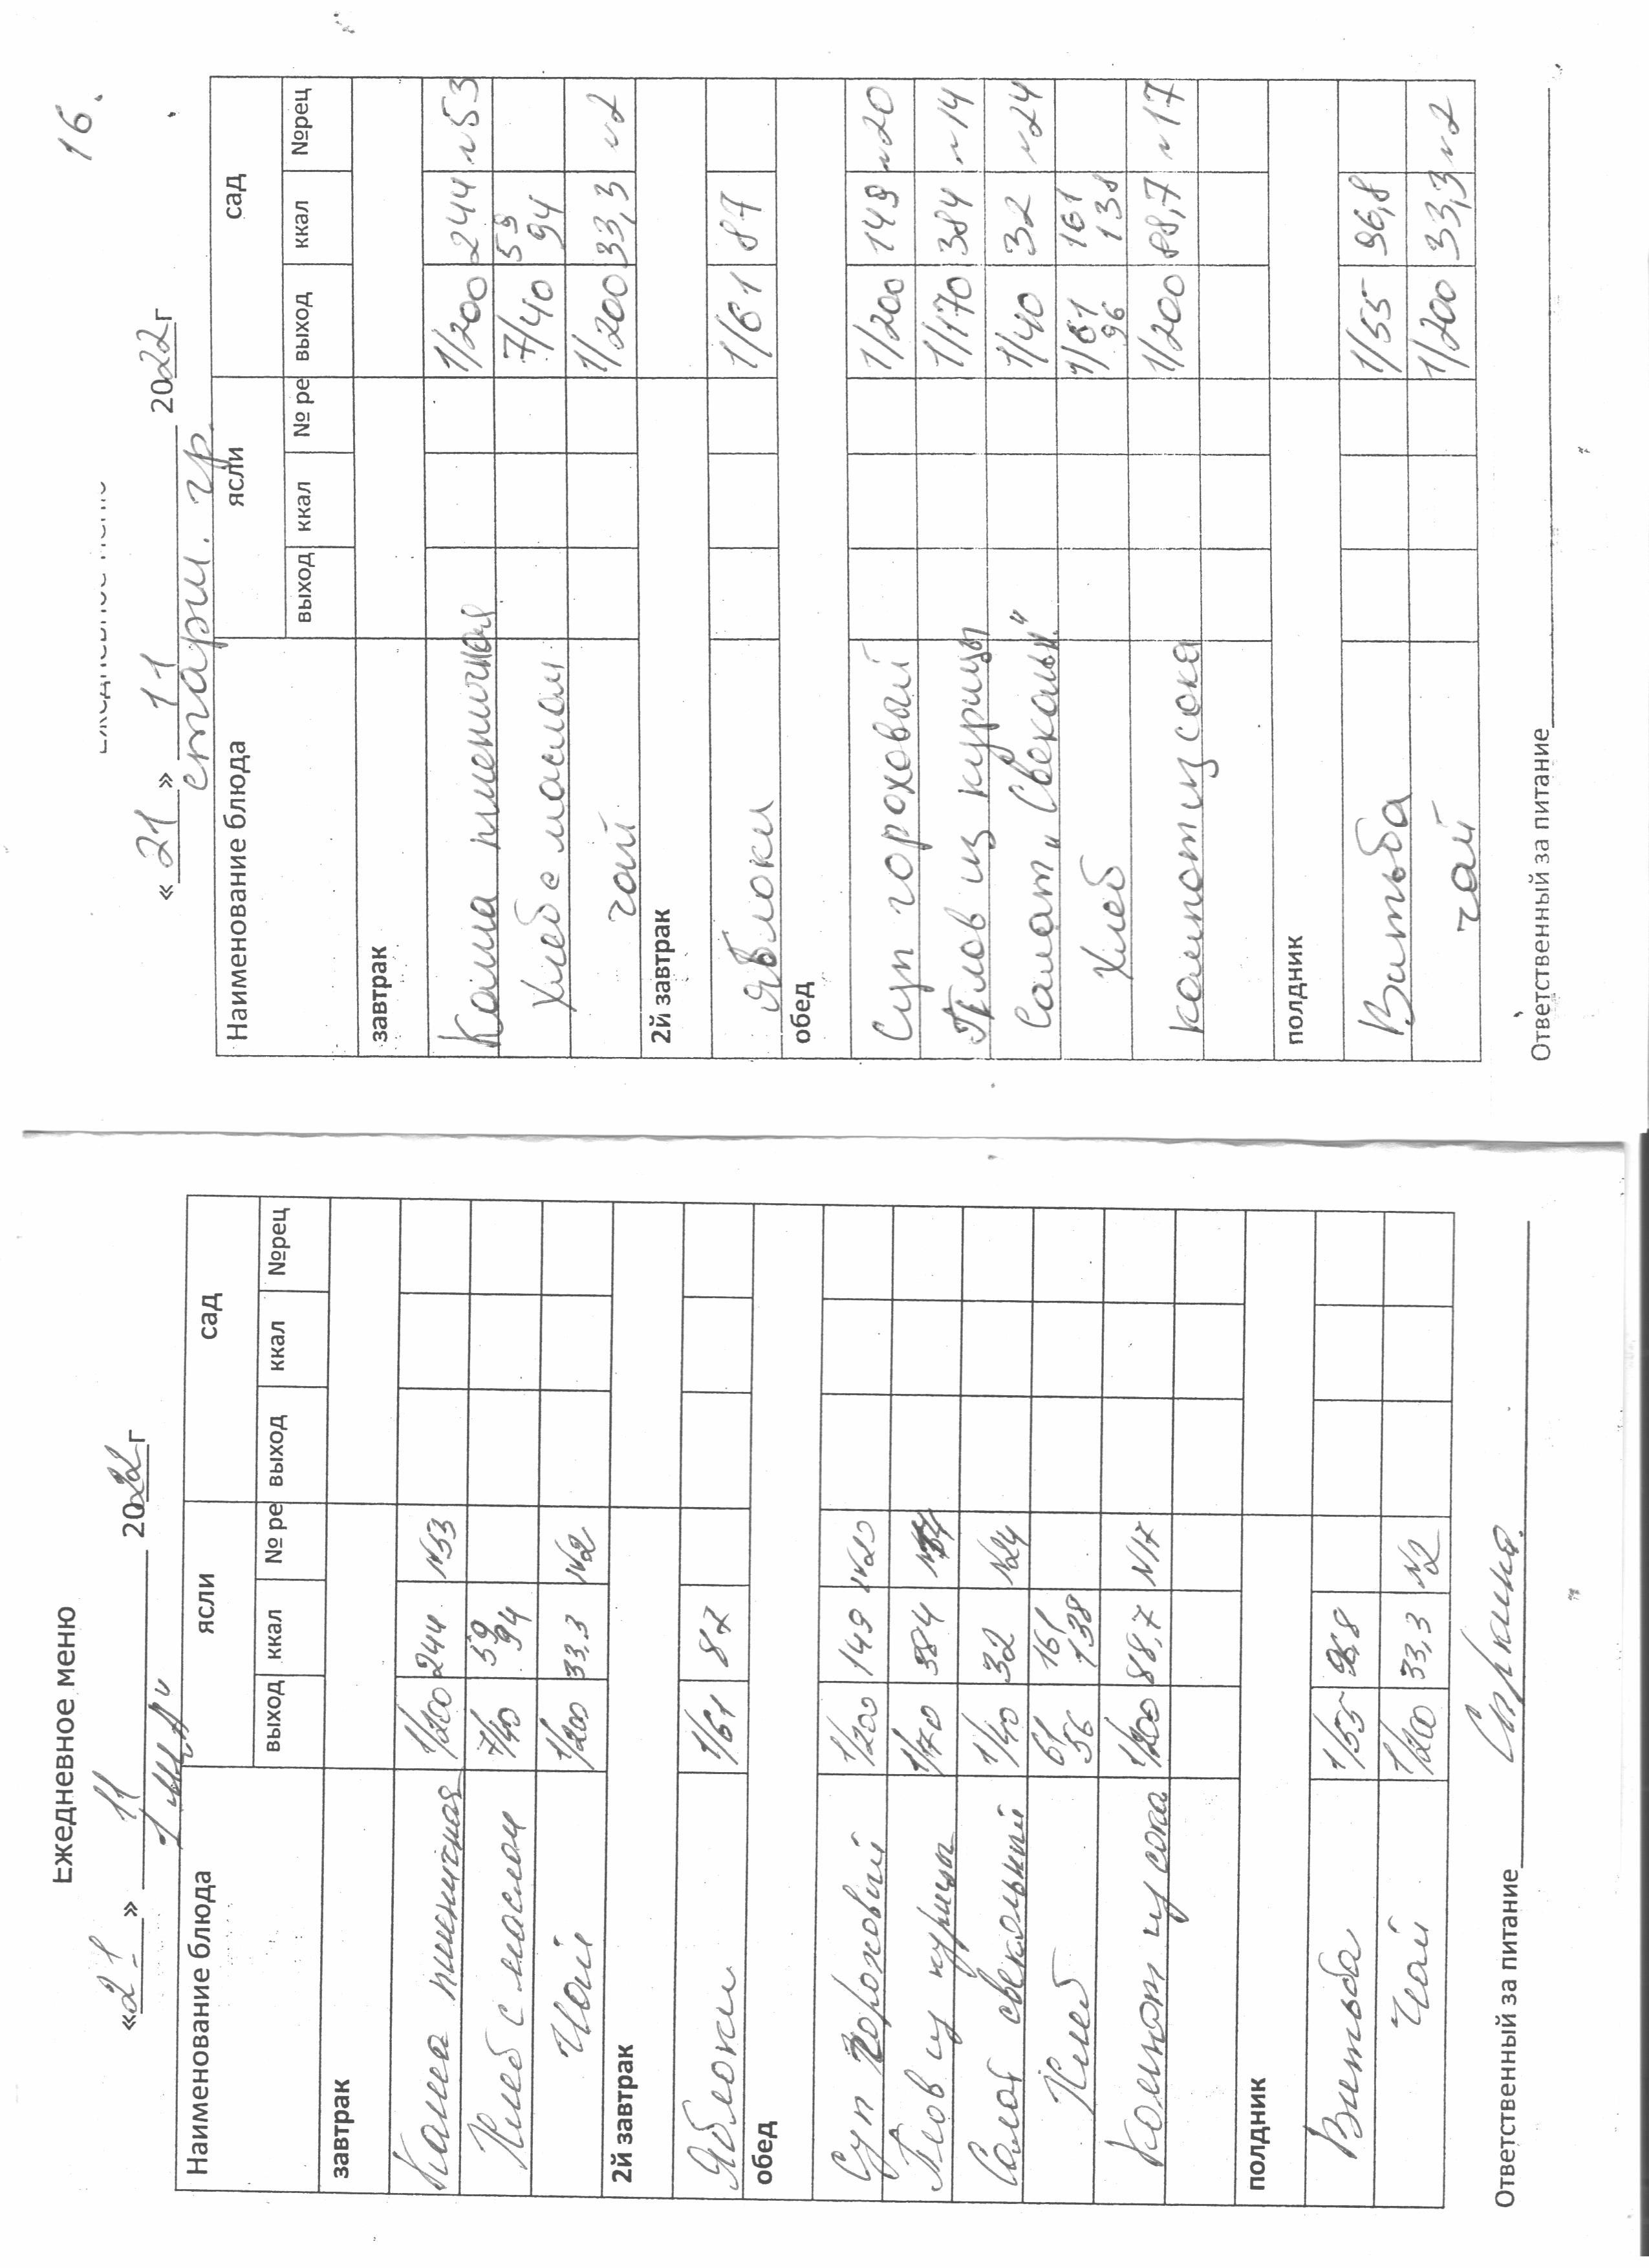 Ежедневное меню
«21» 11 2022г
Наименование блюда ясли сад
выход ккал № ре выход ккал №рец
завтрак
Каша пшеничная 1/200 244 №53
Хлеб с маслом 7/40 59 94
Чай 1/200 33,3 №2
2й завтрак
Яблоки 1/61 87
обед
Суп гороховый 1/200 149 №20
Плов из курицы 1/170 384
Салат свекольный 1/40 32 №24
Хлеб 61 56 161 138
Компот из сока 1/200 88,7 №17
полдник
Витьба 1/55
Чай 1/200 33,3 №2
Ответственный за питание
16.
Ежедневное меню
«21» 11 2022г
старш. гр.
Наименование блюда ясли сад
выход ккал № ре выход ккал №рец
завтрак
Каша пшеничная 1/200 244 №53
Хлеб с маслом 7/40 59 94
чай 1/200 33,3 №2
2й завтрак
яблоки 1/61 87
обед
Суп гороховый 1/200 149 №20
Плов из курицы 1/170 384 №14
Салат „Свекольн." 1/40 32 №24
Хлеб 1/61 96 161 138
компот из сока 1/200 88,7 №17
полдник
Витьба 1/55 96,8
чай 1/200 33,3 №2
Ответственный за питание